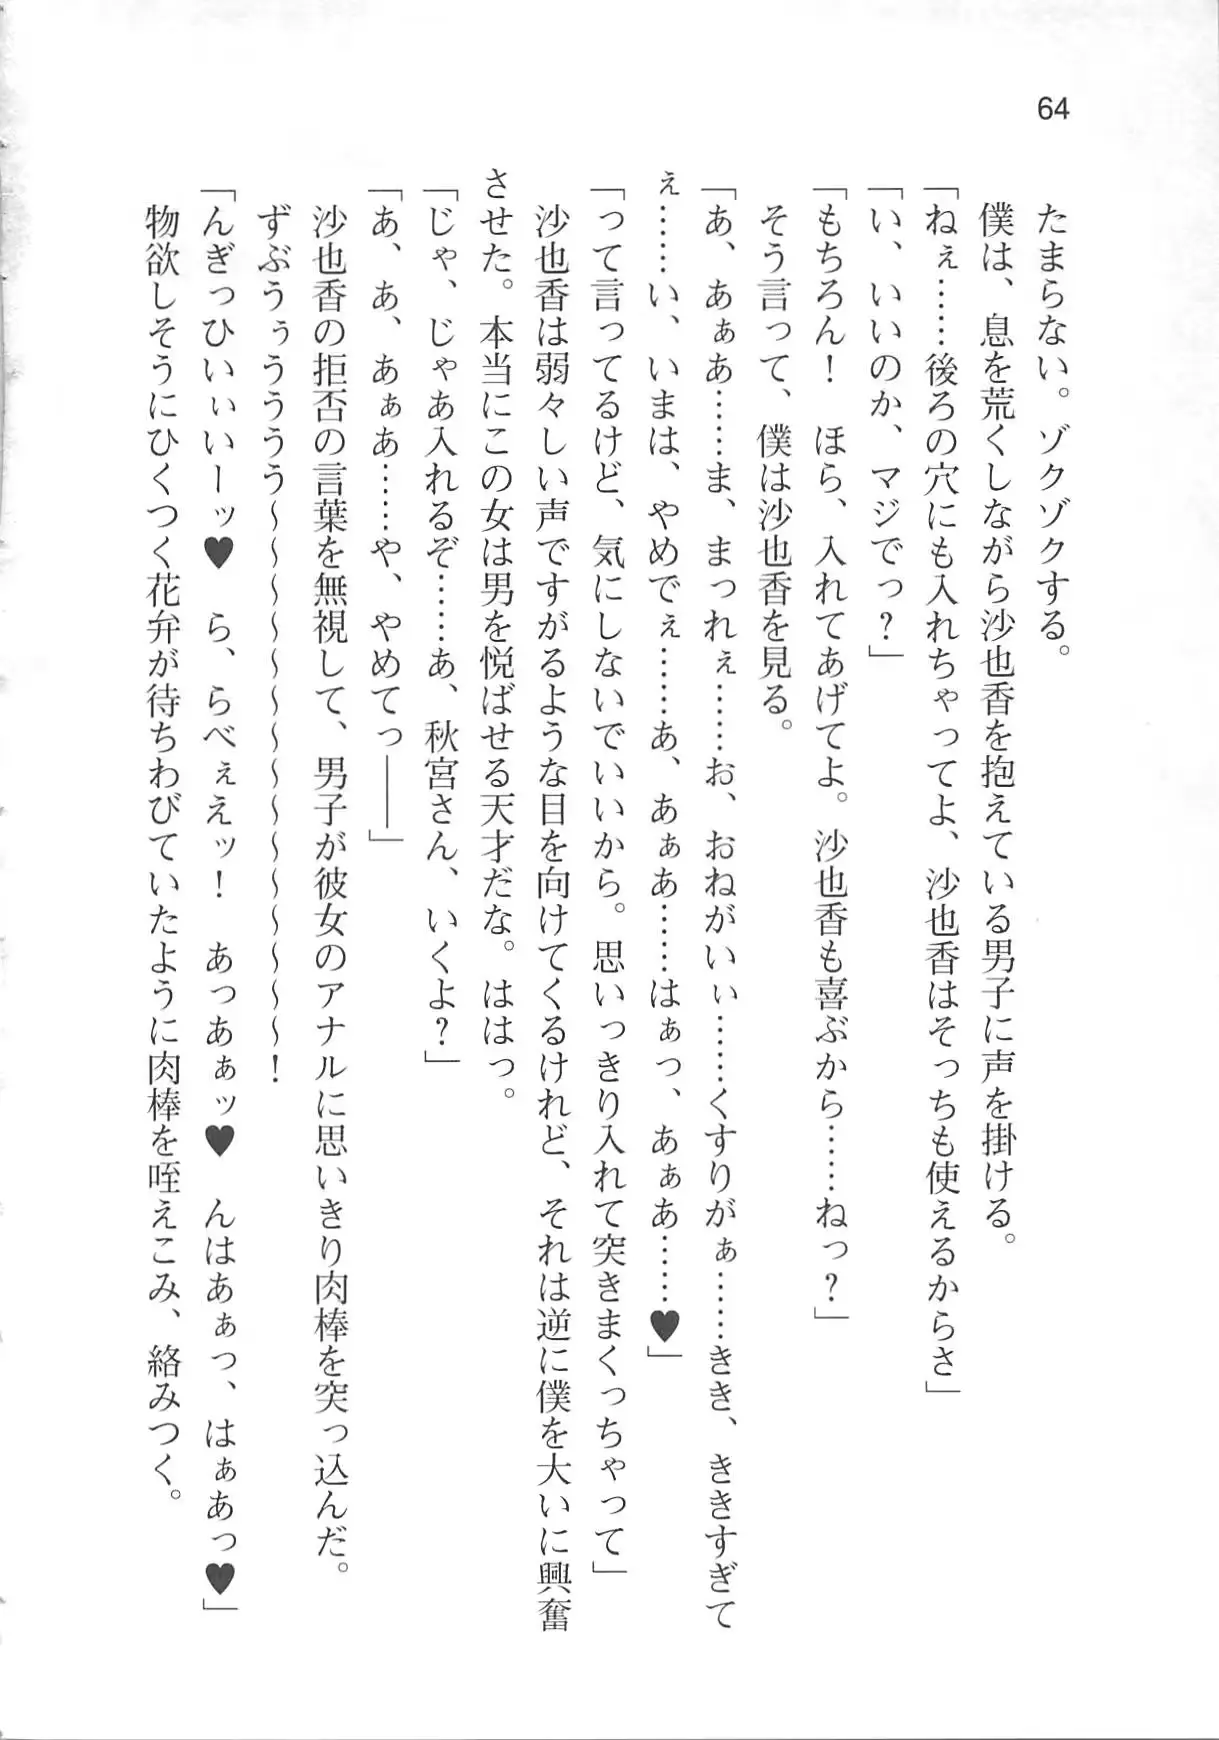 64
たまらない。ゾクゾクする。
僕は、息を荒くしながら沙也香を抱えている男子に声を掛ける。
「ねぇ……後ろの穴にも入れちゃってよ、沙也香はそっちも使えるからさ」
「い、いいのか、マジでっ？」
「もちろん！　ほら、入れてあげてよ。沙也香も喜ぶから……ねっ？」
そう言って、僕は沙也香を見る。
「あ、あぁあ……ま、まっれぇ……お、おねがいぃ……くすりがぁ……きき、ききすぎて
ぇ……い、いまは、やめでぇ……あ、あぁあ……はぁっ、あぁあ……♥」
「って言ってるけど、気にしないでいいから。思いっきり入れて突きまくっちゃって」
沙也香は弱々しい声ですがるような目を向けてくるけれど、それは逆に僕を大いに興奮
させた。本当にこの女は男を悦ばせる天才だな。ははっ。
「じゃ、じゃあ入れるぞ……あ、秋宮さん、いくよ？」
「あ、あ、あぁあ……や、やめてっ――」
沙也香の拒否の言葉を無視して、男子が彼女のアナルに思いきり肉棒を突っ込んだ。
ずぶうぅうううう～～～～～～～～～～～～～～～！
「んぎっひいぃいーッ♥　ら、らべぇえッ！　あっあぁッ♥　んはあぁっ、はぁあっ♥」
物欲しそうにひくつく花弁が待ちわびていたように肉棒を咥えこみ、絡みつく。